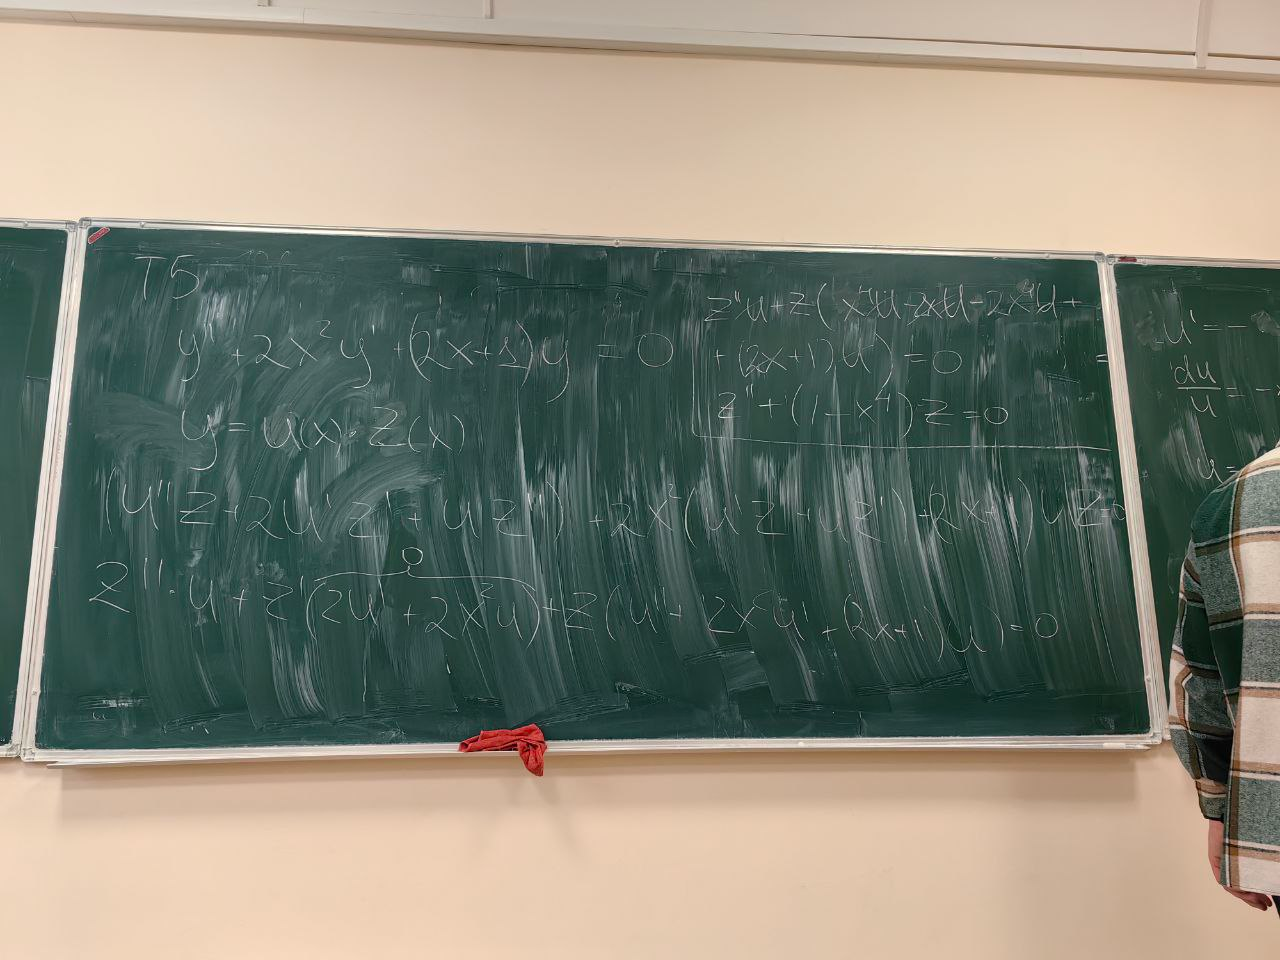 T5
y'' + 2x² y' + (2x+1)y = 0
y = u(x)·z(x)
(u''z + 2u'z' + uz'') + 2x²(u'z + uz') + (2x+1)uz=0
z''·u + z'(2u' + 2x²u) + z(u'' + 2x²u' + (2x+1)u) = 0
0
z''u + z(x⁴u - 2xu - 2x⁴u +
+ (2x+1)u) = 0
z'' + (1-x⁴)·z = 0
u' = -
du/u = -
u =